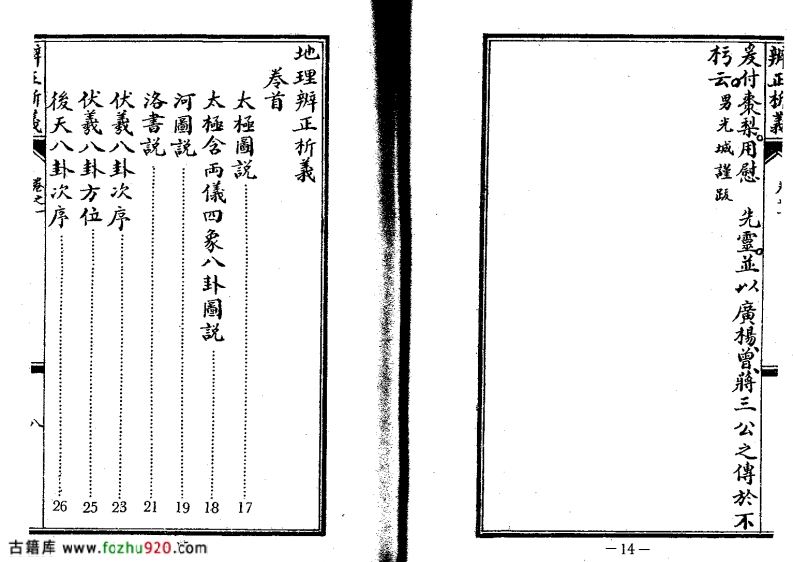 辨正析義
爰付棗梨。用慰　先靈。並以廣楊、曾、蔣三公之傳於不
朽云。男光城謹跋
—14—
地理辨正析義
卷首
太極圖說 17
太極含兩儀四象八卦圖說 18
河圖說 19
洛書說 21
伏羲八卦次序 23
伏羲八卦方位 25
後天八卦次序 26
辨正析義
卷之一
八
古籍库 www.fozhu920.com